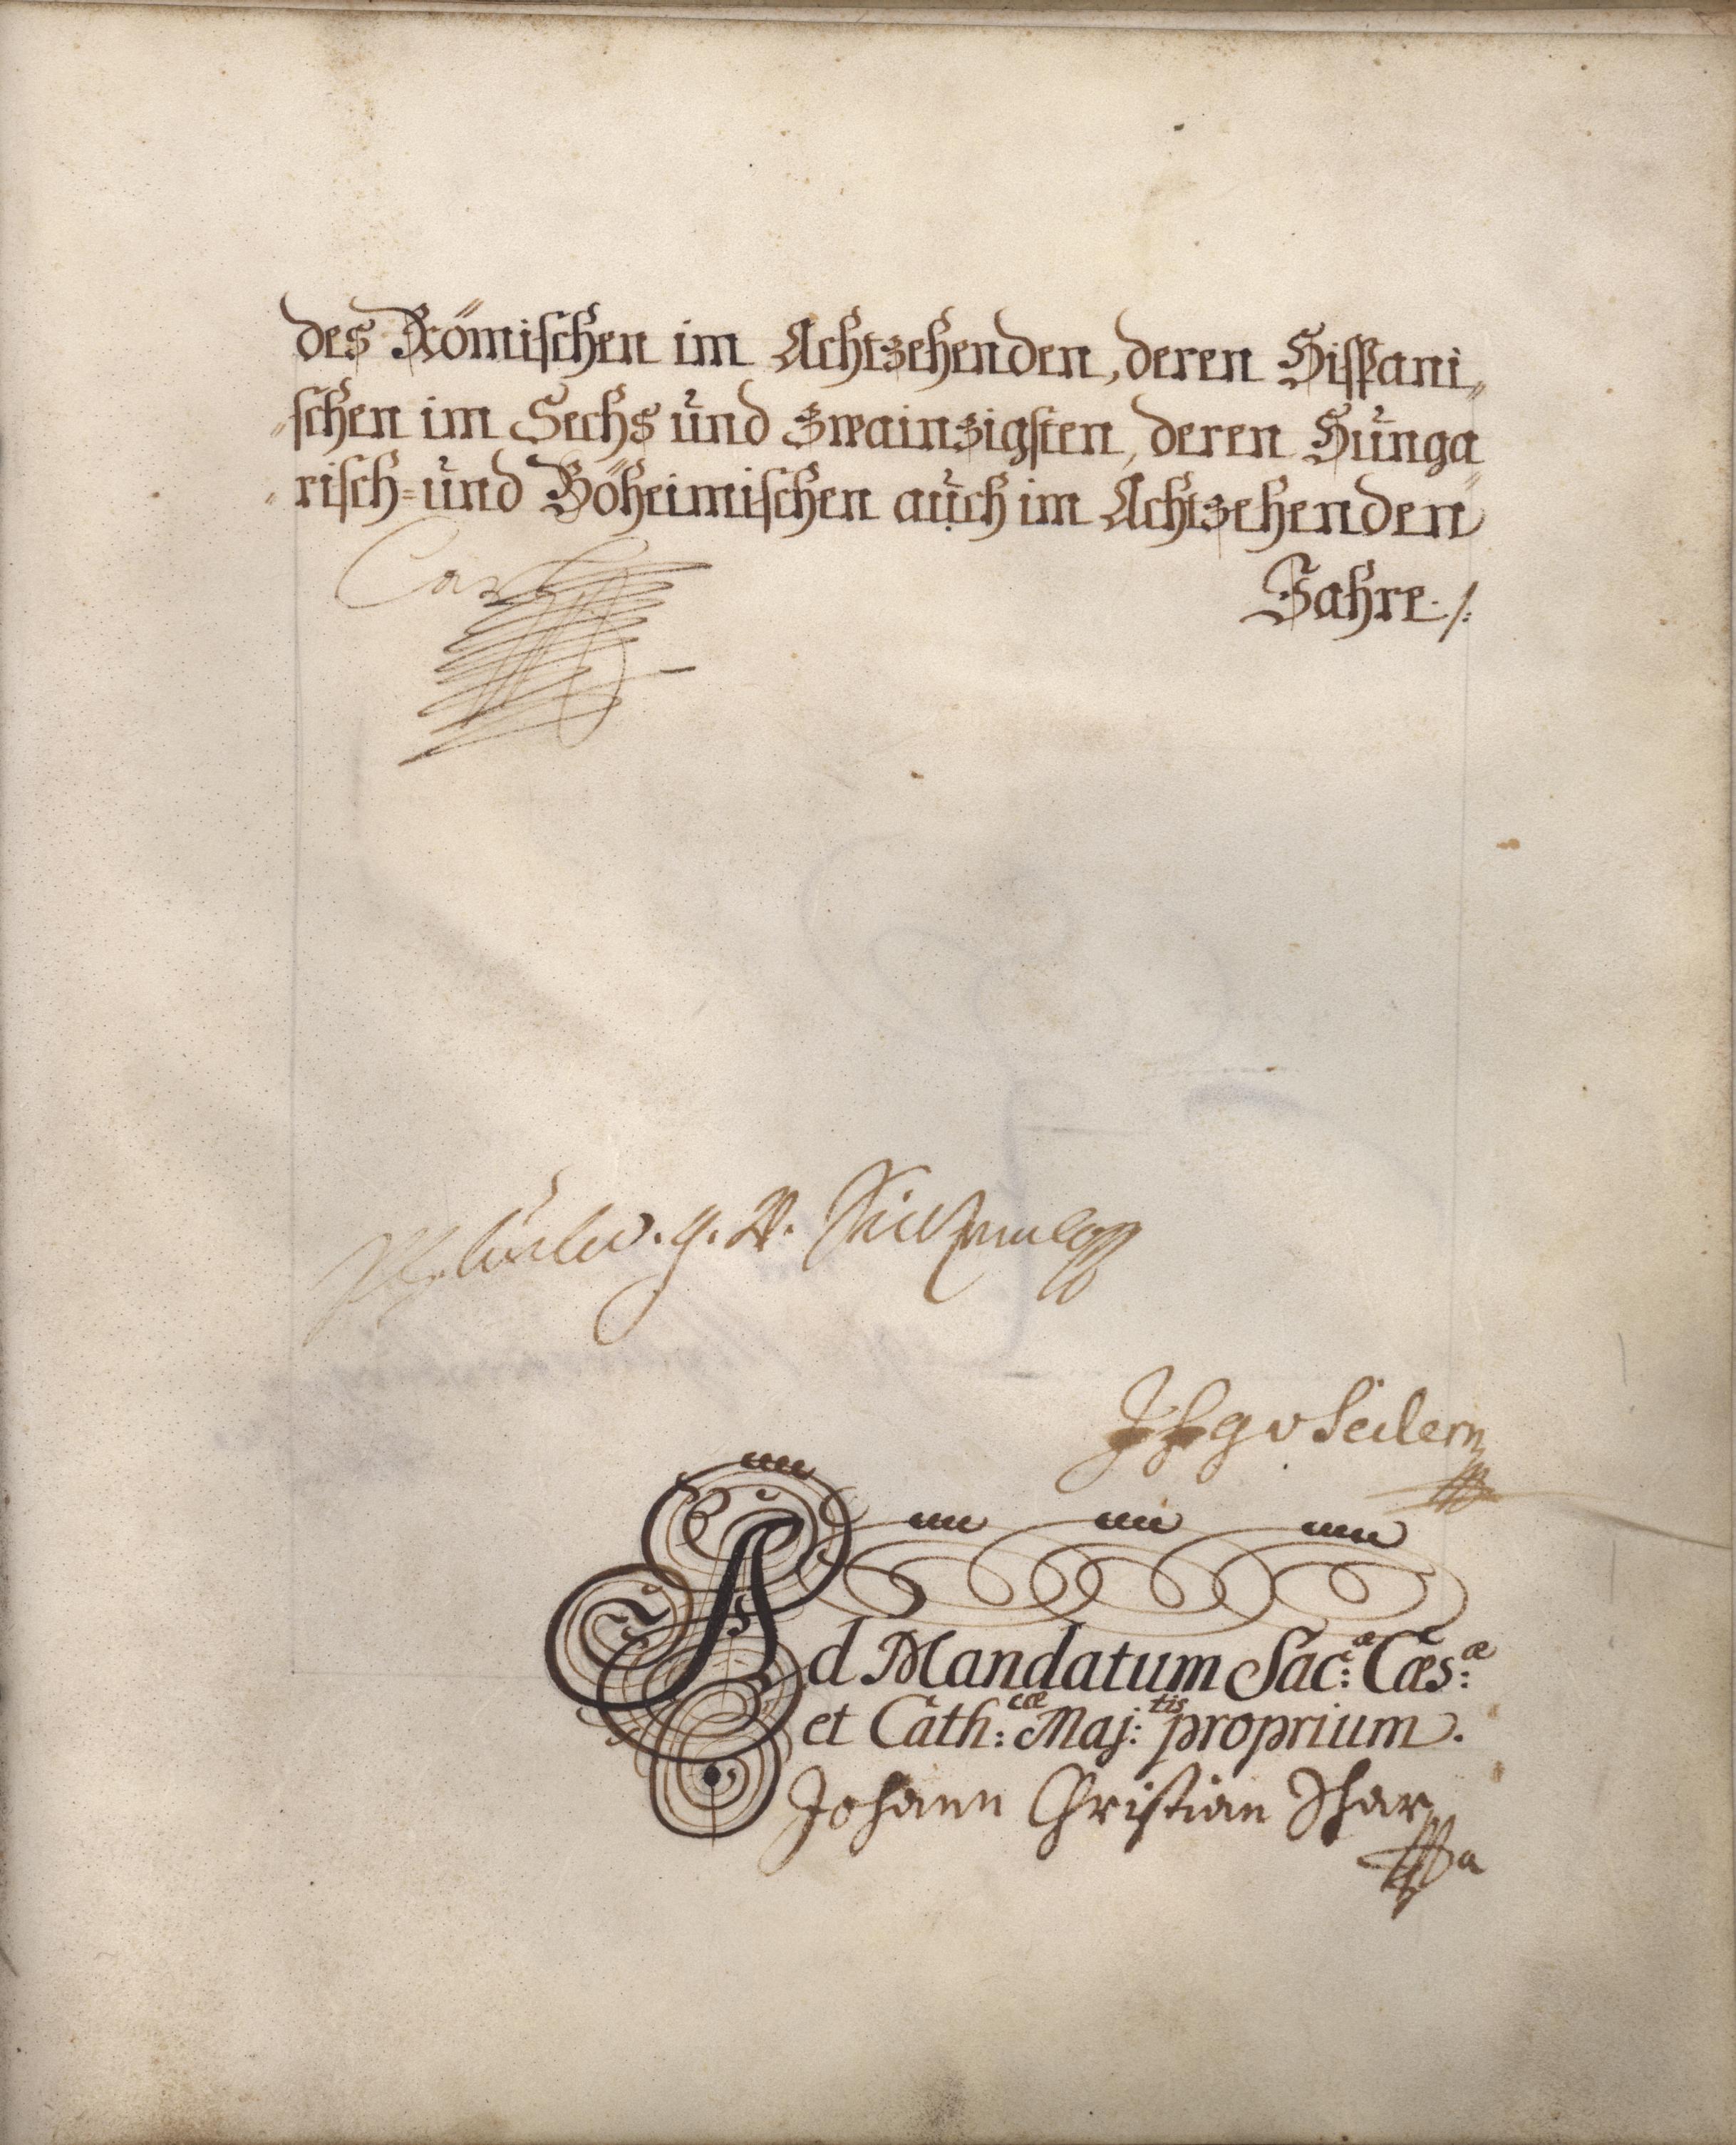 des Römischen im Achtzehenden, deren Hispani„
„schen im Sechs und zwainzigsten, deren Hunga„
„risch= und Böheimischen auch im Achtzehenden
Jahre./:
Carl
J F g v Seilern
Ad Mandatum Sac:æ Cæs:æ
et Cath:cæ Maj:tis proprium.
Johann Christian Schar
a